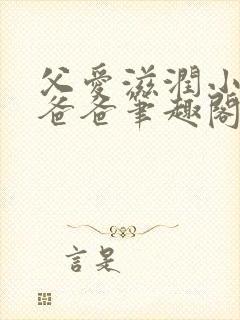 父愛滋潤小
爸爸筆趣閣
言是